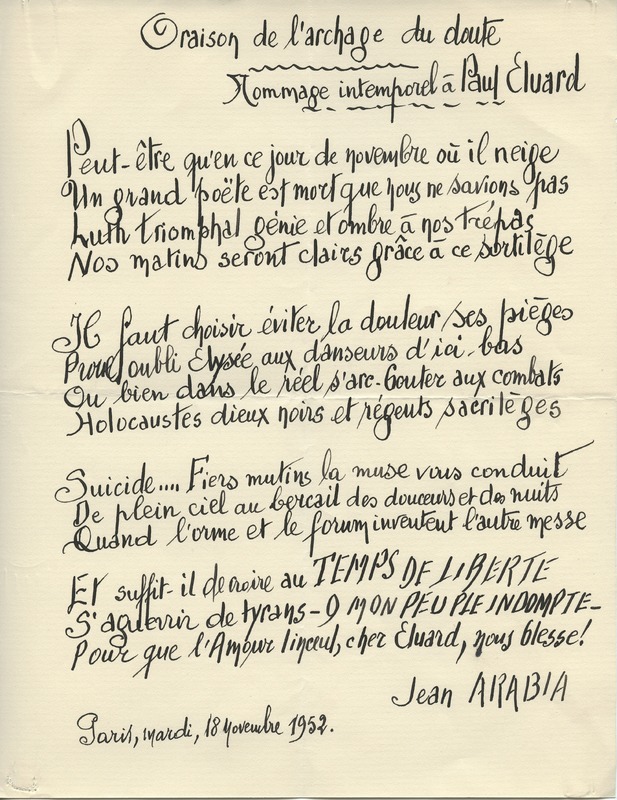 Oraison de l'archage du doute
Hommage intemporel à Paul Eluard
Peut-être qu'en ce jour de novembre où il neige
Un grand poëte est mort que nous ne savions pas
Luth triomphal génie et ombre à nos trépas
Nos matins seront clairs grâce à ce sortilège
Il faut choisir éviter la douleur ses pièges
oubli Elysée aux danseurs d'ici-bas
Ou bien dans le réel s'arc-bouter aux combats
Holocaustes dieux noirs et régents sacrilèges
Suicide.... Fiers mutins la muse vous conduit
De plein ciel au bercail des douceurs et des nuits
Quand l'orme et le forum inventent l'autre messe
Et suffit-il de croire au TEMPS DE LIBERTE
S'aguerrir de tyrans - O MON PEUPLE INDOMPTE -
Pour que l'Amour linceul, cher Eluard, nous blesse!
Jean ARABIA
Paris, mardi, 18 novembre 1952.